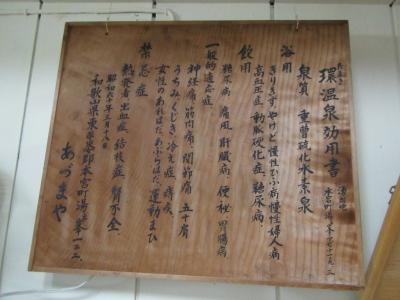 たまき
環温泉効用書
湯の峰
本宮町湯ノ峯
泉質 重曹硫化水素泉
浴用
きりきず、やけど、慢性ひふ病、慢性婦人病
高血圧症、動脈硬化症、糖尿病、
飲用
糖尿病、痛風、肝臓病、便秘、胃腸病
一般的適応症
神経痛、筋肉痛、関節痛、五十肩
うちみ、くじき、冷え症、痔疾、
女性のあれはだ、あぶらはだ、運動まひ
禁忌症
熱発者、出血症、結核症、腎不全、
昭和六十年三月十八日
和歌山県東牟婁郡本宮町湯ノ峯一二二、
あづまや